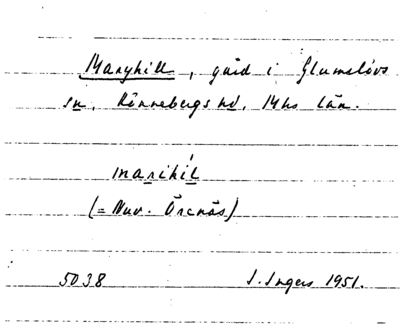 Maryhill, gård i Glumslövs
sn, Rönnebergs hd, Mhs län.
marihíl
(= Nuv. Örenäs)
5038 I. Ingers 1951.